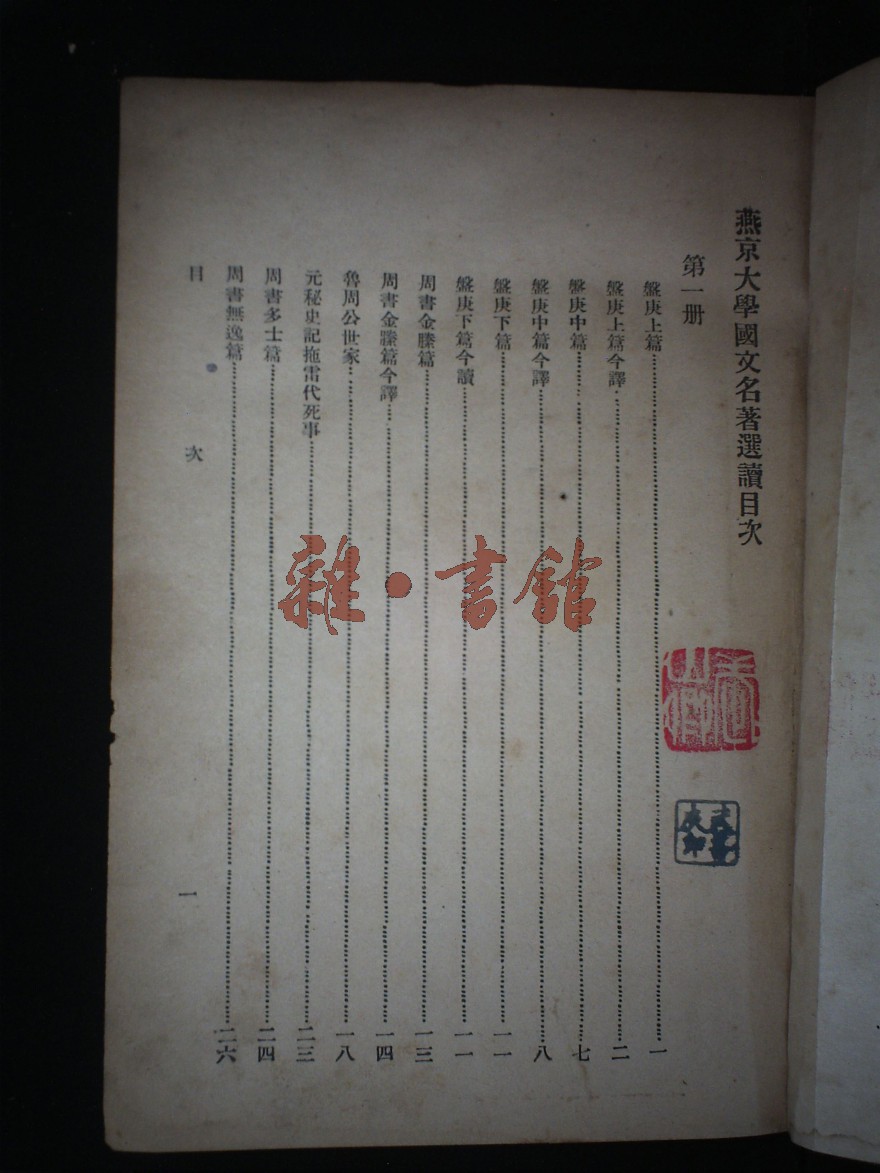 燕京大學國文名著選讀目次
第一册
盤庚上篇……一
盤庚上篇今譯……二
盤庚中篇……七
盤庚中篇今譯……八
盤庚下篇……一一
盤庚下篇今讀……一一
周書金縢篇……一三
周書金縢篇今譯……一四
魯周公世家……一八
元秘史記拖雷代死事……二三
周書多士篇……二四
周書無逸篇……二六
目次
一
雜·書館